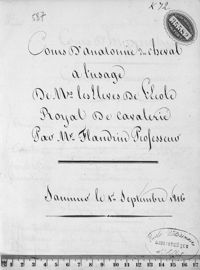 587
K72
Cours D'anatomie du cheval
a l'usage
De Mrs les Eleves De L'Ecole
Royal De Cavalerie
Par Mr Flandrin Professeur
Saumur le 1er Septembre 1816